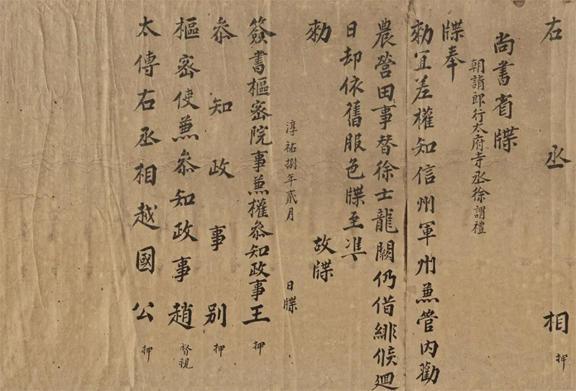 右丞相押
尚書省牒
朝請郎行太府寺丞徐謂禮
牒奉
敕宜差權知信州軍州兼管內勸
農營田事替徐士龍闕仍借緋候迴
日却依舊服色牒至準
敕故牒
淳祐捌年貳月日牒
簽書樞密院事兼權叅知政事王押
叅知政事別押
樞密使兼叅知政事趙督視
太傅右丞相越國公押